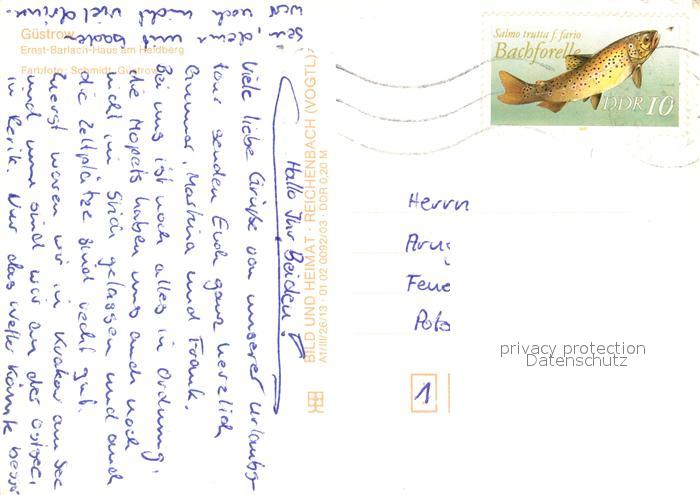 Güstrow
Ernst-Barlach-Haus am Heidberg
Farbfoto: Schmidt, Güstrow
Hallo Ihr Beiden!
Viele liebe Grüße von unserer Urlaubs-
tour senden Euch ganz herzlich
Gunnar, Martina und Frank.
Bei uns ist noch alles in Ordnung,
die Mopets haben uns auch noch
nicht im Stich gelassen und auch
die Zeltplätze sind recht gut.
Zuerst waren wir in Krakow am See
und nun sind wir an der Ostsee,
in Rerik. Nur das Wetter könnte besser
sein, denn uns
noch nicht viel
BILD UND HEIMAT · REICHENBACH (VOGTL)
A1/III/26/13 · 01 02 0092/03 · DDR 0,20 M
Salmo trutta f. fario
Bachforelle
DDR 10
Herrn
Feue
Pots
1
privacy protection
Datenschutz